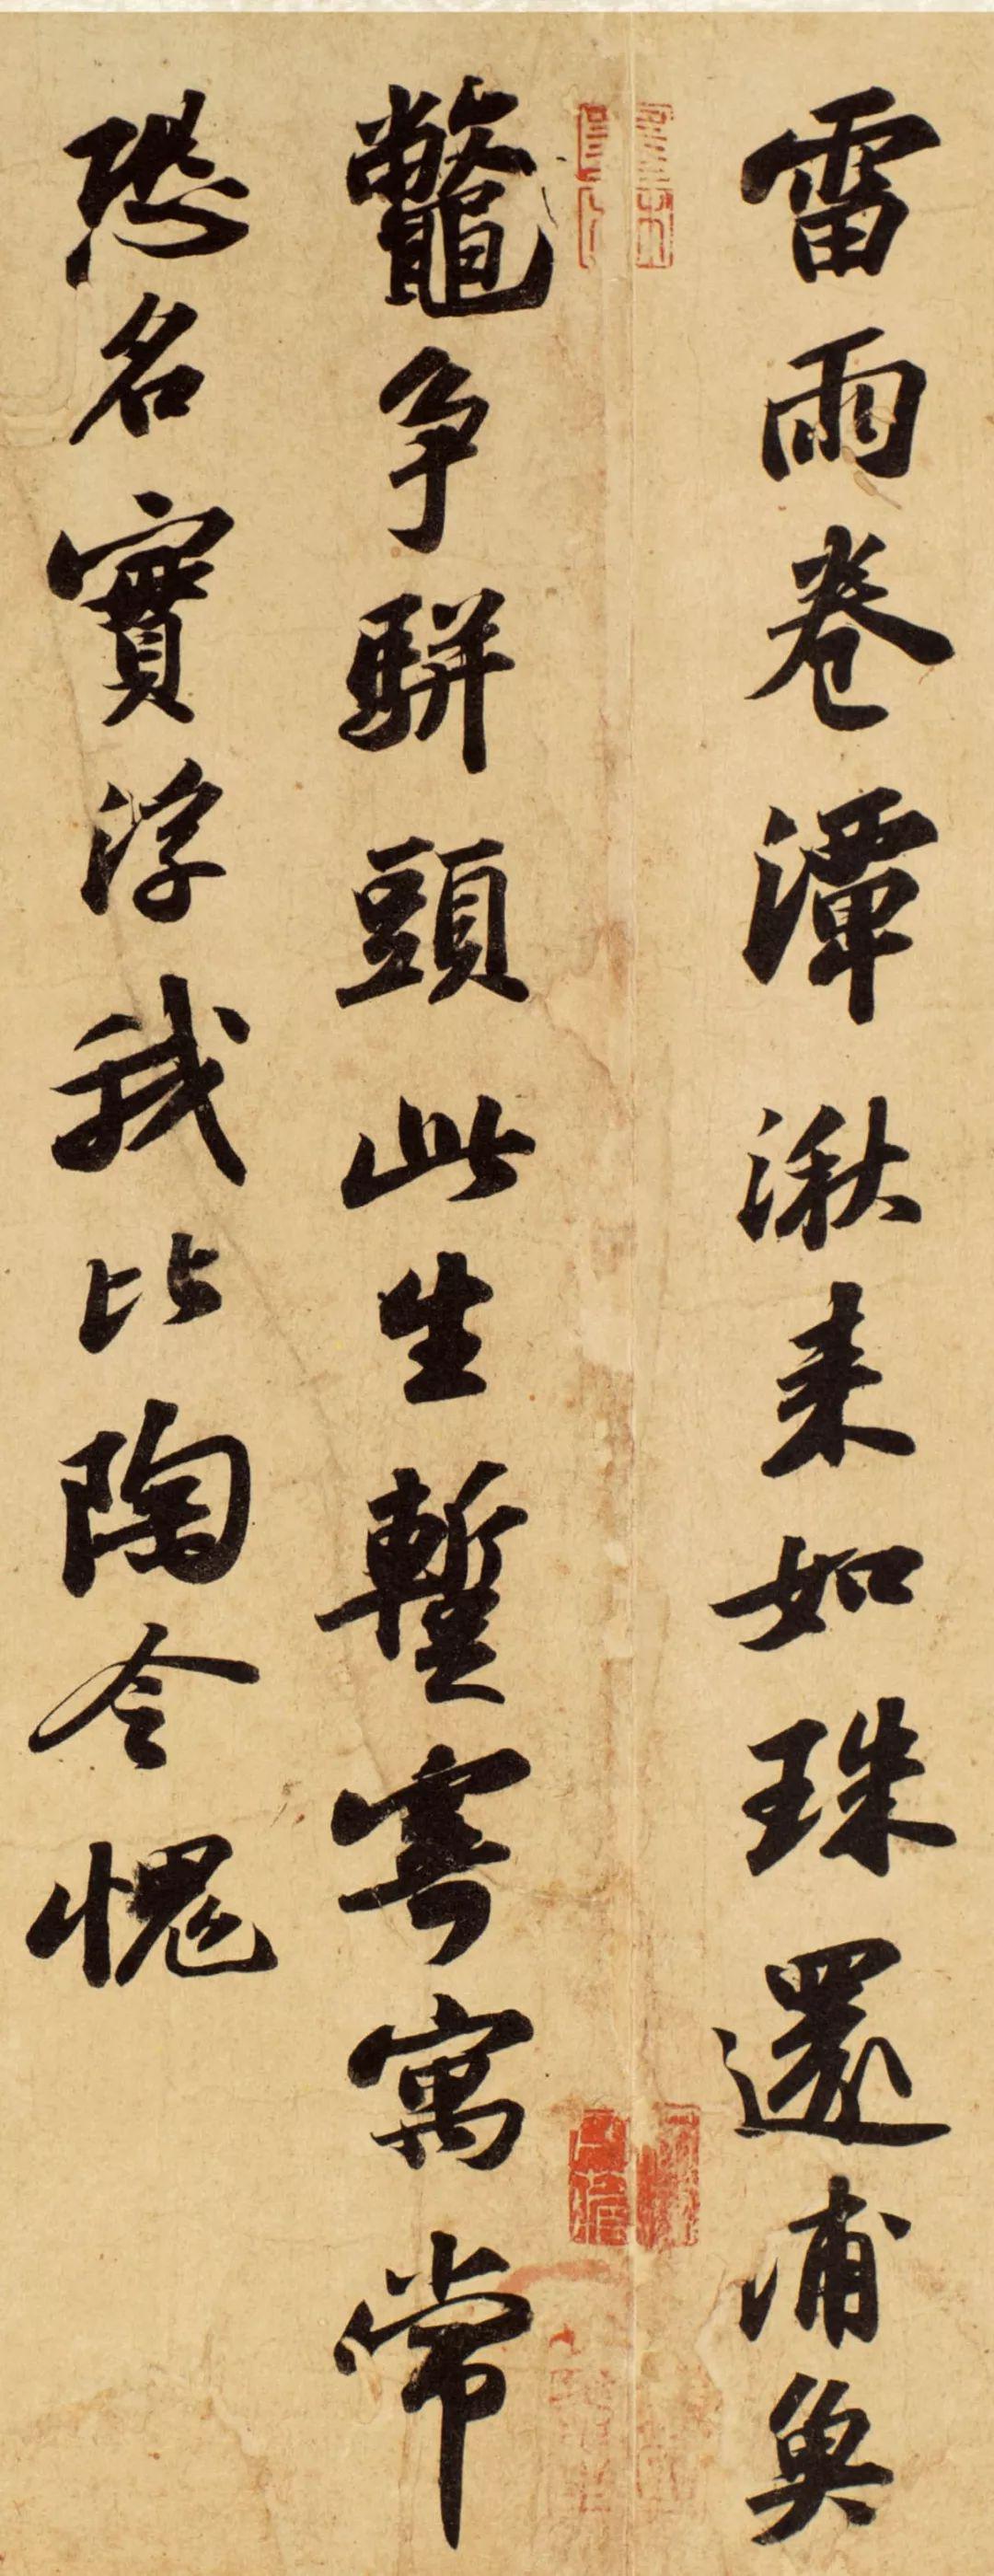 雷雨卷潭湫来如珠還浦魚
鼈争駢頭此生暫寄寓常
恐名實浮我比陶令愧